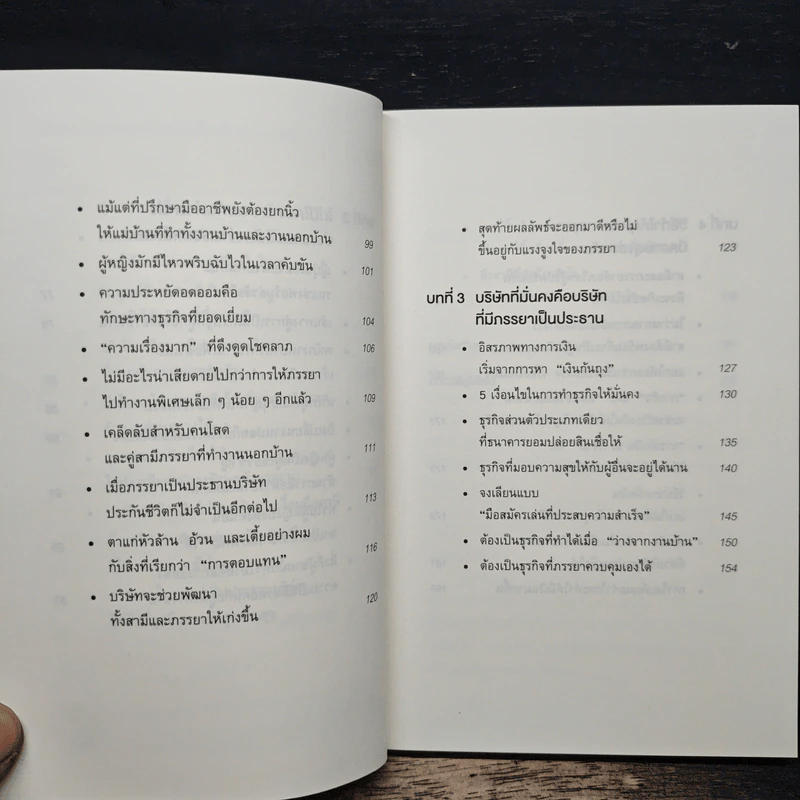 • แม้แต่ที่ปรึกษามืออาชีพยังต้องยกนิ้ว
ให้แม่บ้านที่ทำทั้งงานบ้านและงานนอกบ้าน 99
• ผู้หญิงมักมีไหวพริบฉับไวในเวลาคับขัน 101
• ความประหยัดอดออมคือ
ทักษะทางธุรกิจที่ยอดเยี่ยม 104
• “ความเรื่องมาก” ที่ดึงดูดโชคลาภ 106
• ไม่มีอะไรน่าเสียดายไปกว่าการให้ภรรยา
ไปทำงานพิเศษเล็ก ๆ น้อย ๆ อีกแล้ว 109
• เคล็ดลับสำหรับคนโสด
และคู่สามีภรรยาที่ทำงานนอกบ้าน 111
• เมื่อภรรยาเป็นประธานบริษัท
ประกันชีวิตก็ไม่จำเป็นอีกต่อไป 113
• ตาแก่หัวล้าน อ้วน และเตี้ยอย่างผม
กับสิ่งที่เรียกว่า “การตอบแทน” 116
• บริษัทจะช่วยพัฒนา
ทั้งสามีและภรรยาให้เก่งขึ้น 120
• สุดท้ายผลลัพธ์จะออกมาดีหรือไม่
ขึ้นอยู่กับแรงจูงใจของภรรยา 123
บทที่ 3 บริษัทที่มั่นคงคือบริษัท
ที่มีภรรยาเป็นประธาน
• อิสรภาพทางการเงิน
เริ่มจากการหา “เงินก้นถุง” 127
• 5 เงื่อนไขในการทำธุรกิจให้มั่นคง 130
• ธุรกิจส่วนตัวประเภทเดียว
ที่ธนาคารยอมปล่อยสินเชื่อให้ 135
• ธุรกิจที่มอบความสุขให้กับผู้อื่นจะอยู่ได้นาน 140
• จงเลียนแบบ
“มือสมัครเล่นที่ประสบความสำเร็จ” 145
• ต้องเป็นธุรกิจที่ทำได้เมื่อ “ว่างจากงานบ้าน” 150
• ต้องเป็นธุรกิจที่ภรรยาควบคุมเองได้ 154